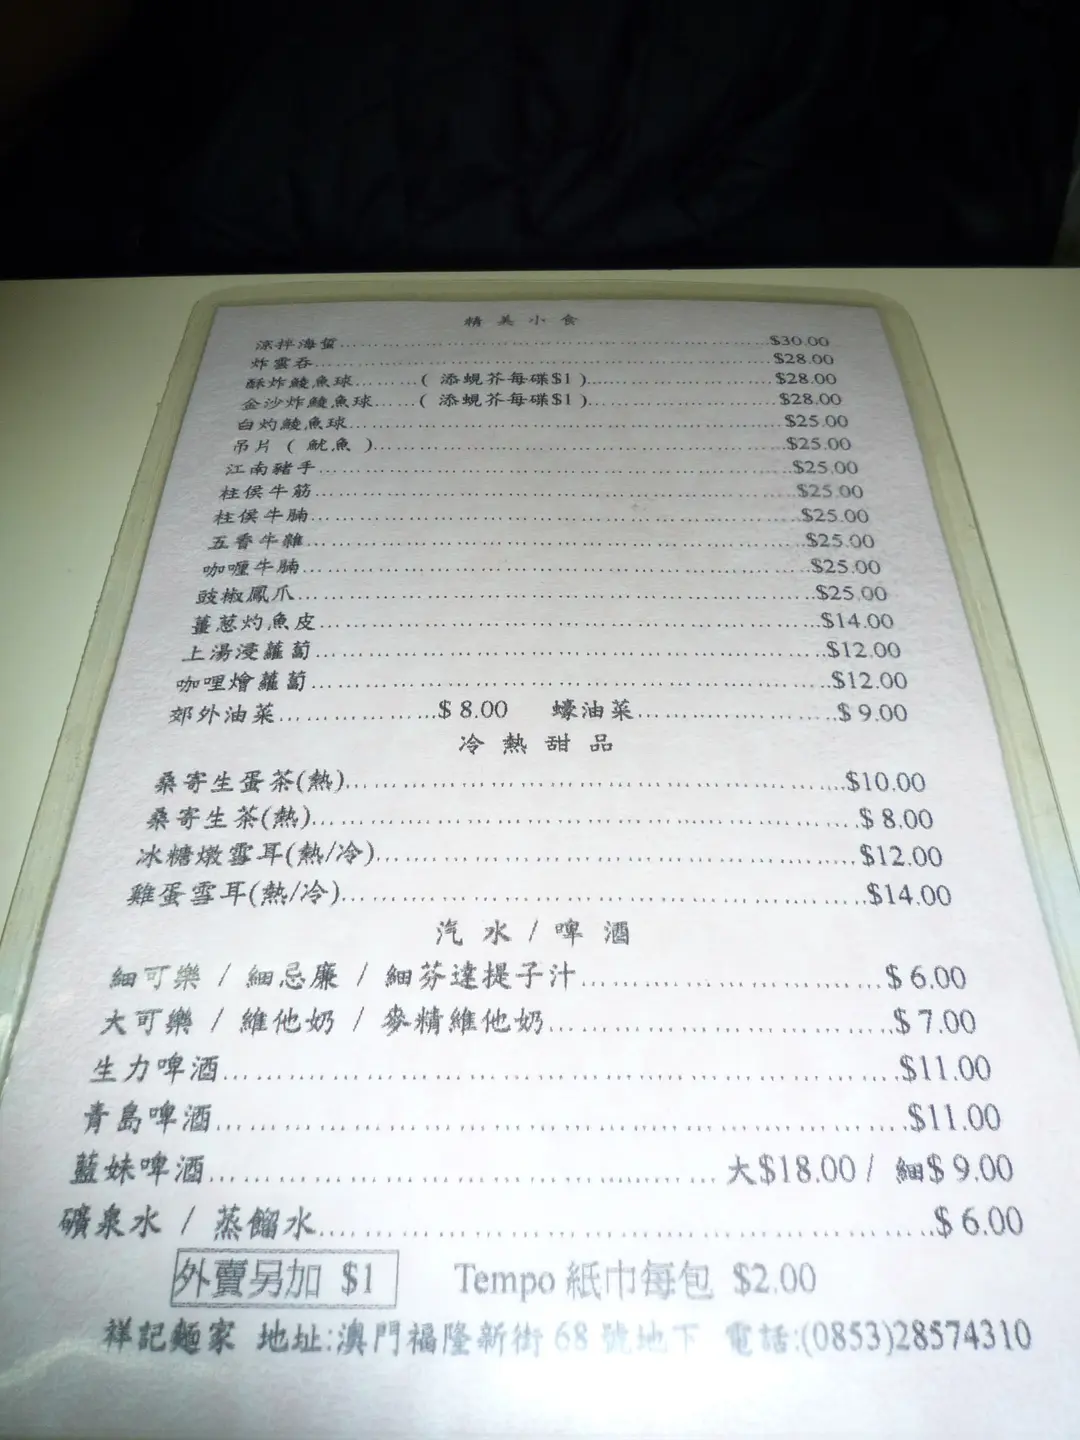 精美小食
涼拌海蜇……$30.00
炸雲吞……$28.00
酥炸鯪魚球……( 添蜆芥每碟$1 )……$28.00
金沙炸鯪魚球……( 添蜆芥每碟$1 )……$28.00
白灼鯪魚球……$25.00
吊片 ( 魷魚 )……$25.00
江南豬手……$25.00
柱侯牛筋……$25.00
柱侯牛腩……$25.00
五香牛雜……$25.00
咖喱牛腩……$25.00
豉椒鳳爪……$25.00
薑蔥灼魚皮……$14.00
上湯浸蘿蔔……$12.00
咖哩燴蘿蔔……$12.00
郊外油菜……$ 8.00 蠔油菜……$ 9.00
冷熱甜品
桑寄生蛋茶(熱)……$10.00
桑寄生茶(熱)……$ 8.00
冰糖燉雪耳(熱/冷)……$12.00
雞蛋雪耳(熱/冷)……$14.00
汽水 / 啤酒
細可樂 / 細忌廉 / 細芬達提子汁……$ 6.00
大可樂 / 維他奶 / 麥精維他奶……$ 7.00
生力啤酒……$11.00
青島啤酒……$11.00
藍妹啤酒……大$18.00 / 細$ 9.00
礦泉水 / 蒸餾水……$ 6.00
外賣另加 $1 Tempo 紙巾每包 $2.00
祥記麵家 地址:澳門福隆新街 68 號地下 電話:(0853)28574310